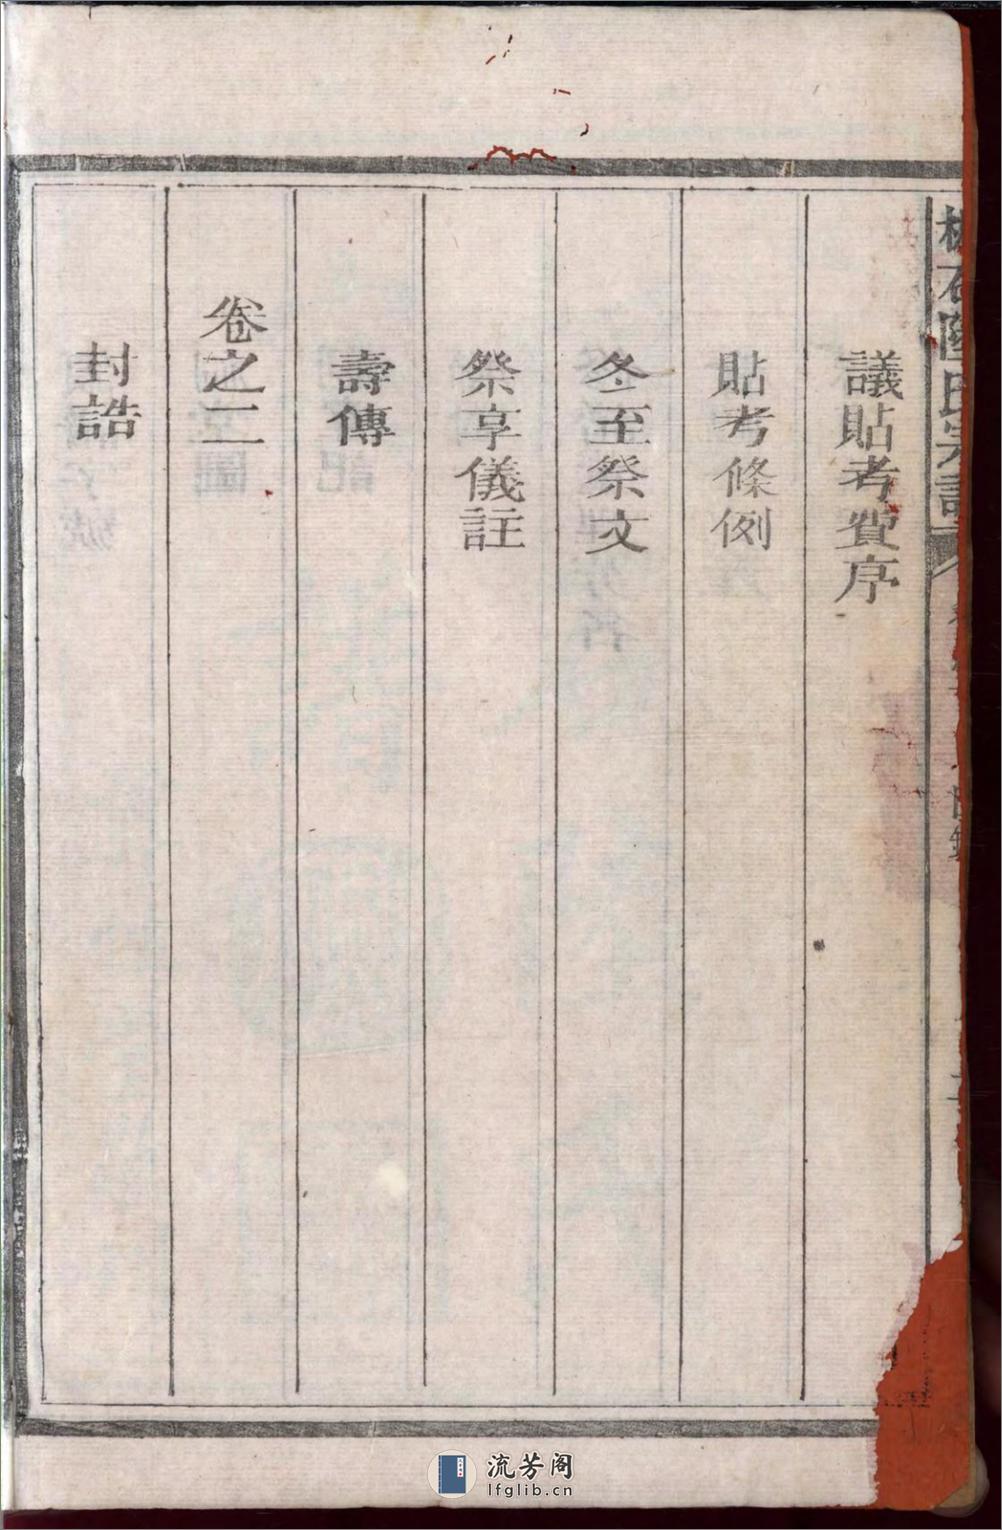 議貼考費序
貼考條例
冬至祭文
祭享儀註
壽傳
卷之二
封誥
流芳阁
lfglib.cn